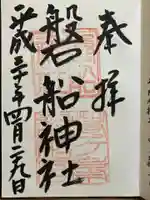 奉拝
磐船神社
平成三十年四月二九日